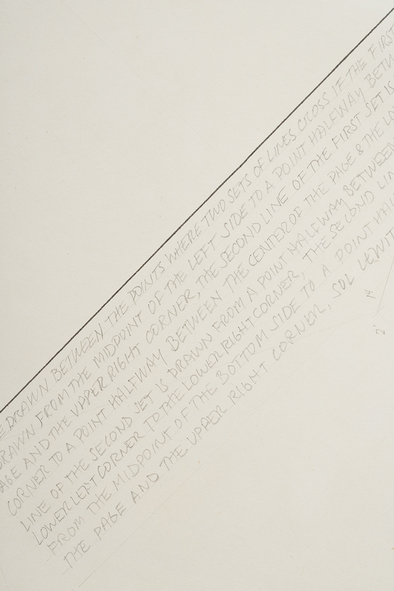 E DRAWN BETWEEN THE POINTS WHERE TWO SETS OF LINES CROSS IF THE FIRST
DRAWN FROM THE MIDPOINT OF THE LEFT SIDE TO A POINT HALFWAY BETW
AGE AND THE UPPER RIGHT CORNER, THE SECOND LINE OF THE FIRST SET IS
CORNER TO A POINT HALFWAY BETWEEN THE CENTER OF THE PAGE & THE LO
LINE OF THE SECOND SET IS DRAWN FROM A POINT HALFWAY BETWEEN
LOWER LEFT CORNER TO THE LOWER RIGHT CORNER, THE SECOND LIN
FROM THE MIDPOINT OF THE BOTTOM SIDE TO A POINT HAL
THE PAGE AND THE UPPER RIGHT CORNER, SOL LEWIT